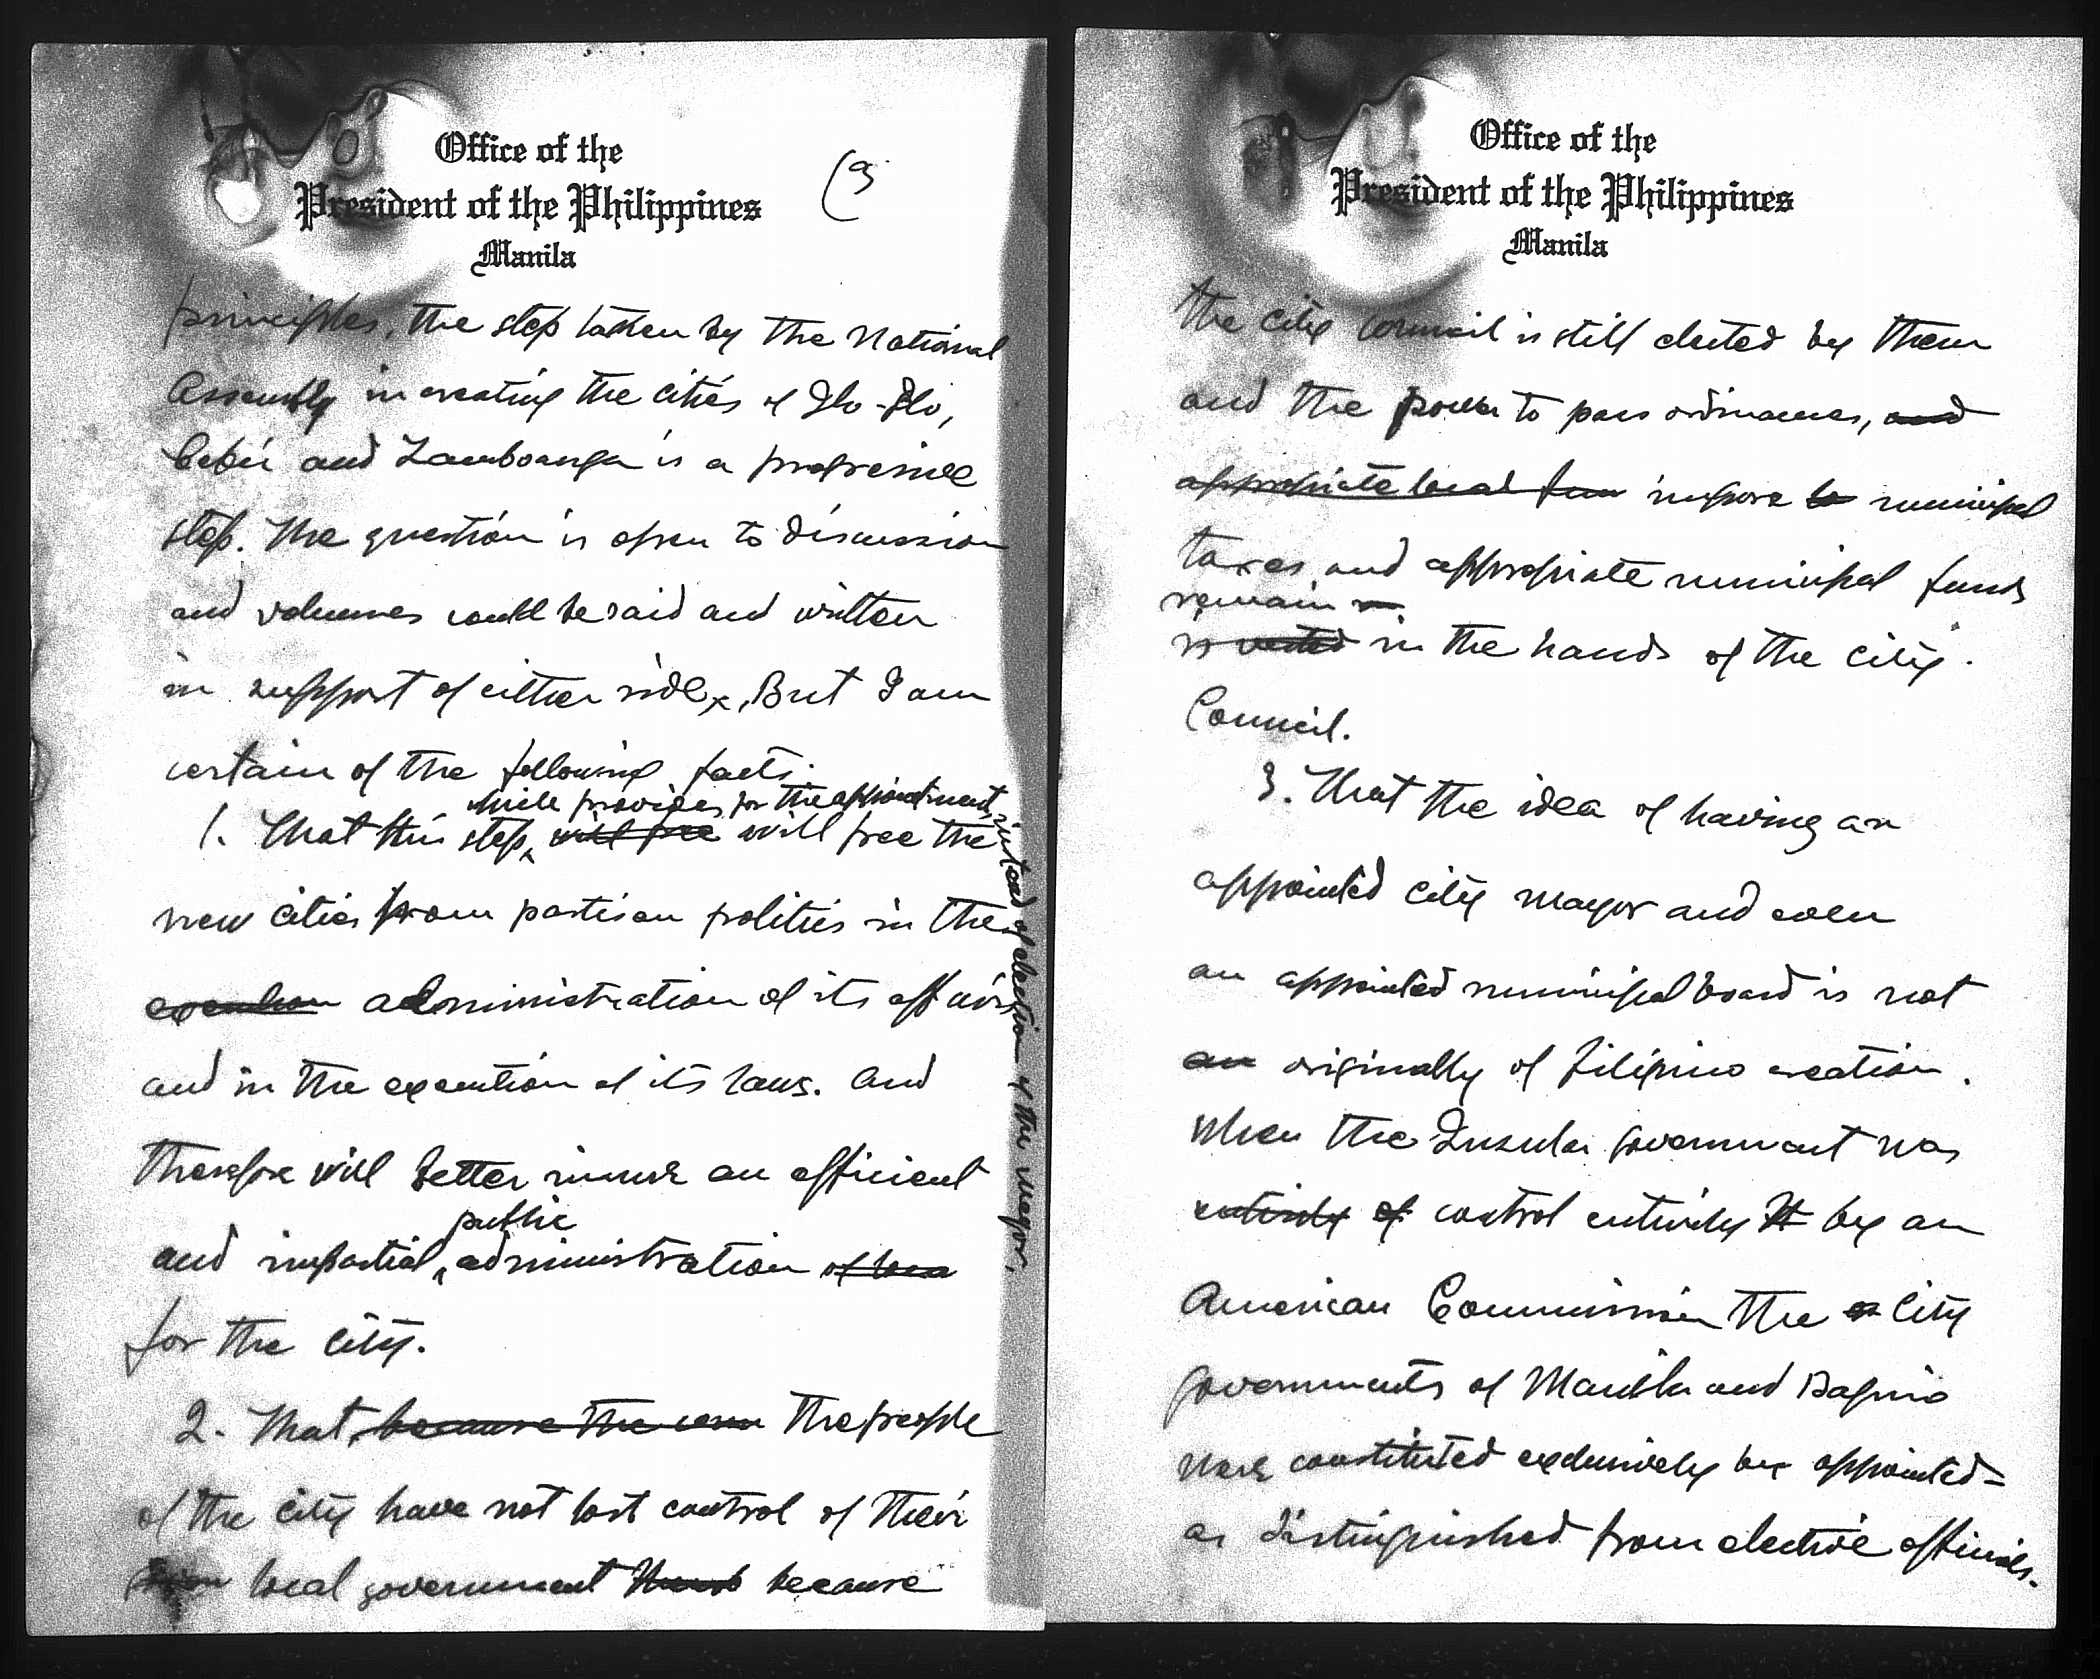 Office of the
President of the Philippines
Manila
(9
principles, the step taken by the National
Assembly in creating the cities of Ilo-Ilo,
Cebú and Zamboanga is a progressive
step. The question is open to discussion
and volumes could be said and written
in support of either side. But I am
certain of the following facts.
which provides for the appointment, instead of election of the mayor,
1. That this step, will free will free the
new cities from partisan politics in the
execution administration of its affairs
and in the execution of its laws. And
therefore will better insure an efficient
public
and impartial administration of loca
for the city.
2. That, because the the people
of the city have not lost control of their
local government because
Office of the
President of the Philippines
Manila
the city council is still elected by them
and the power to pass ordinances, and
appropriate local fun impose municipal
taxes and appropriate municipal funds
remain
is vested in the hands of the city
Council.
3. That the idea of having an
appointed city mayor and even
an appointed municipal board is not
an originally of Filipino creation.
When the Insular Government was
entirely of control entirely by an
American Commission the City
governments of Manila and Baguio
were constituted exclusively by appointed-
as distinguished from elective officials.